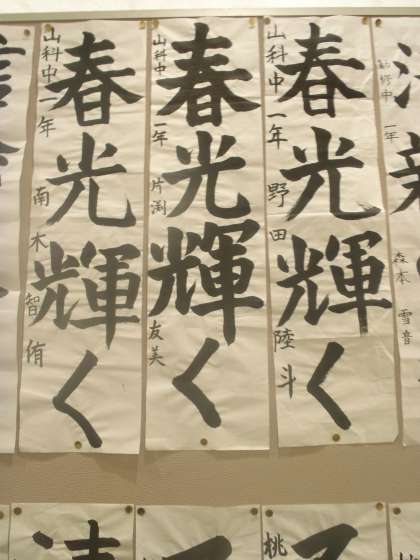 勧修中 一年 森本 雪音
春光輝く
山科中 一年 野田 陸斗
春光輝く
山科中 一年 片渕 友美
春光輝く
山科中 一年 南木 智侑
桃